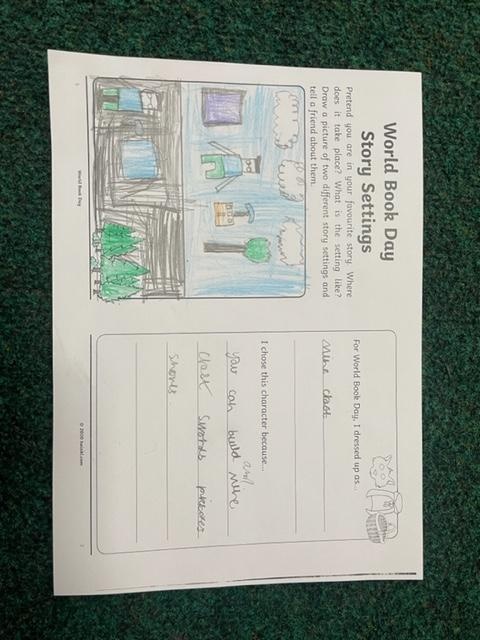 World Book Day
Story Settings
Pretend you are in your favourite story. Where
does it take place? What is the setting like?
Draw a picture of two different story settings and
tell a friend about them.
World Book Day
For World Book Day, I dressed up as...
Mine claft
I chose this character because...
you can build and mine
claft swords
© 2020 twinkl.com